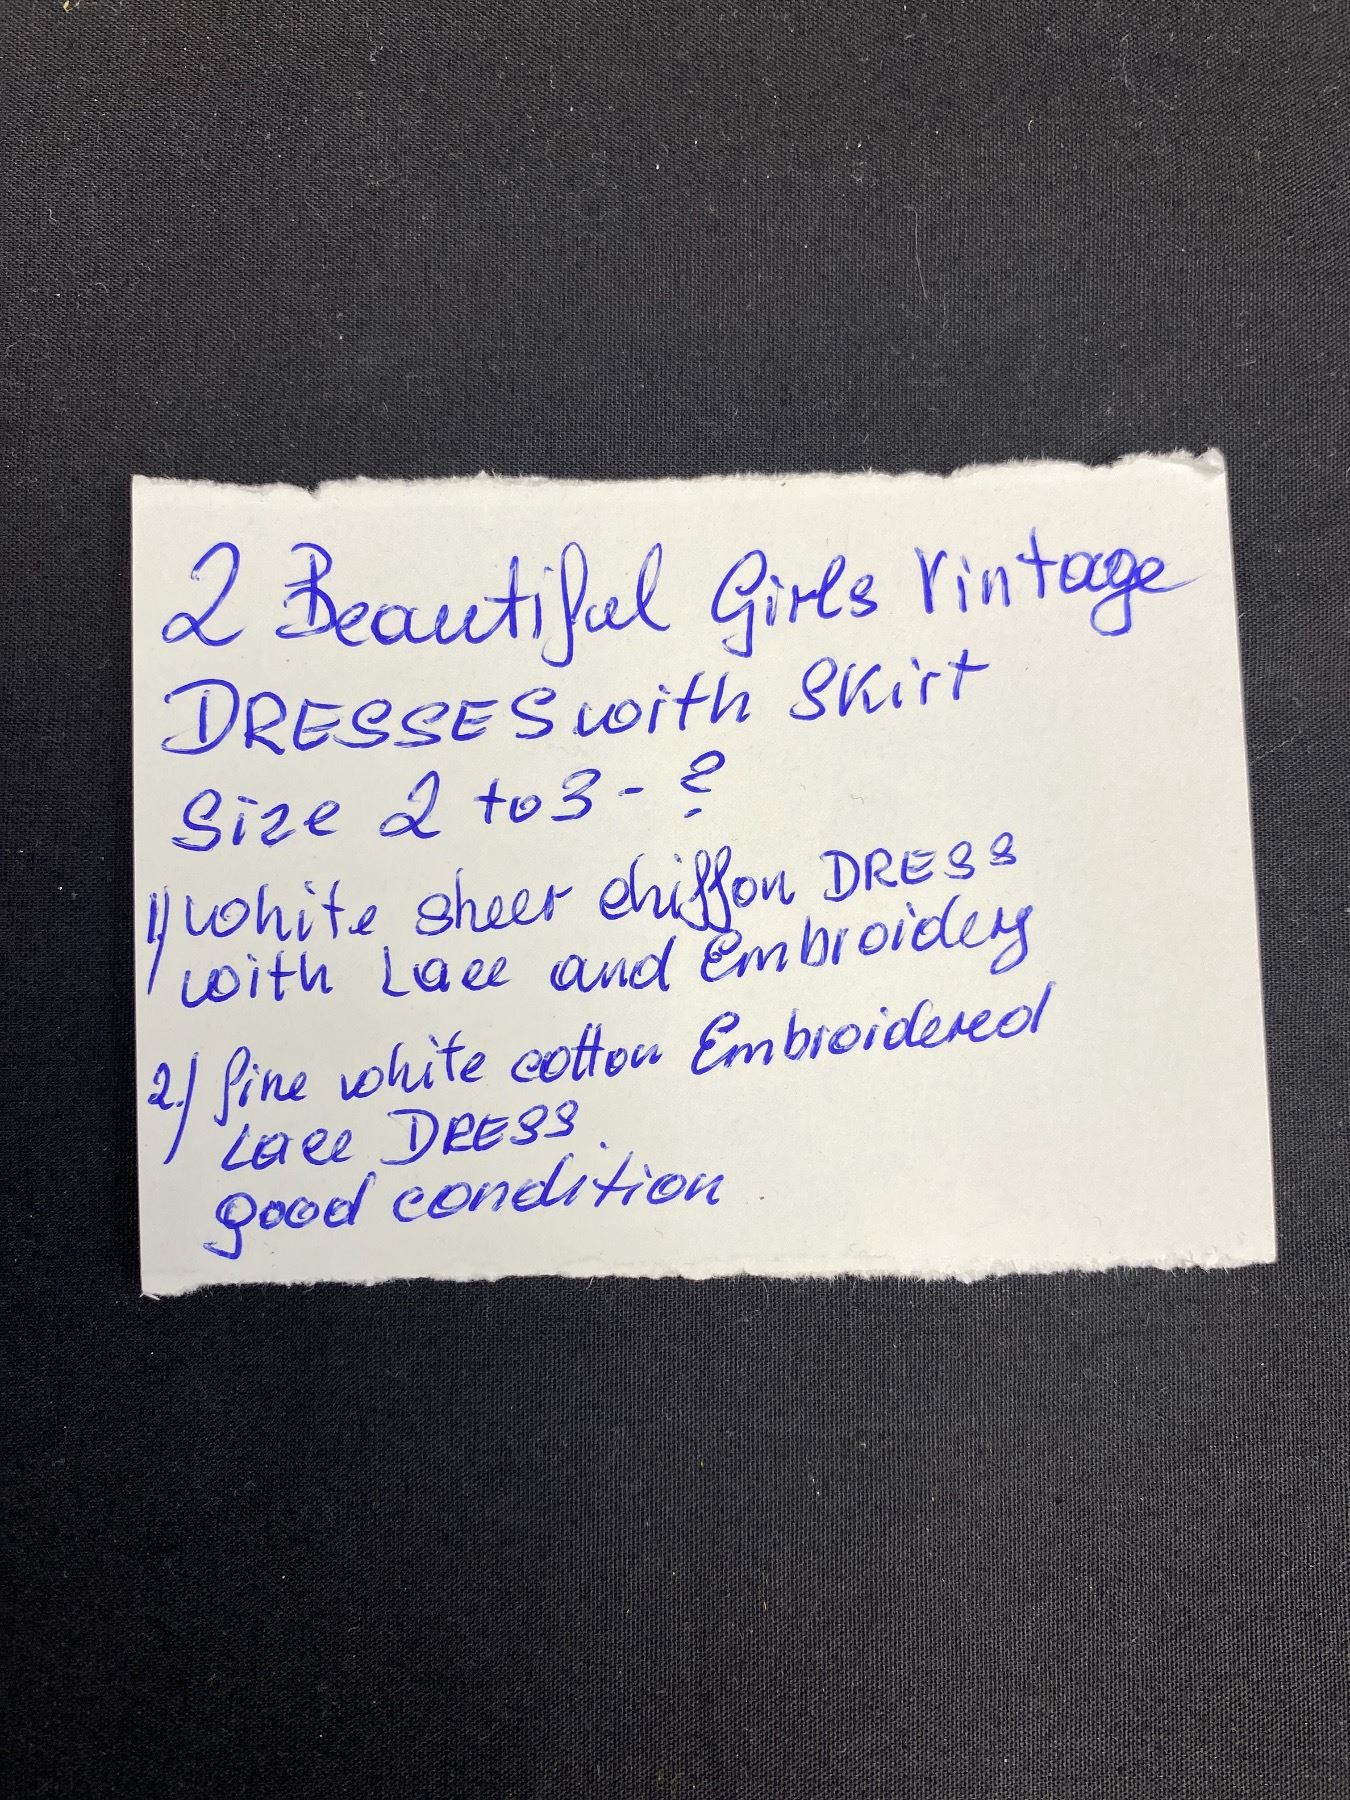 2 Beautiful Girls Vintage
DRESSES with Skirt
Size 2 to 3 - ?
1) white sheer chiffon DRESS
with Lace and Embroidery
2.) fine white cotton Embroidered
Lace DRESS
good condition